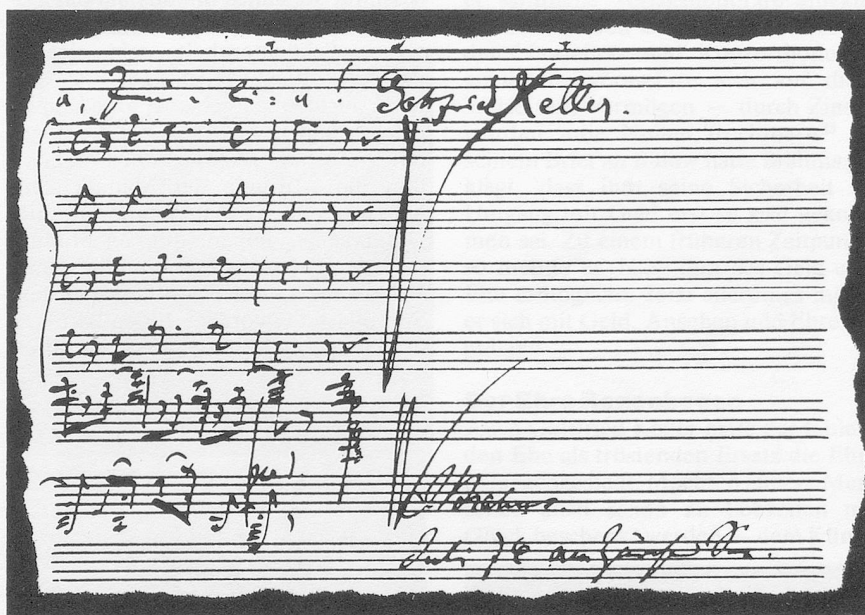 a, Emi - li - a! Gottfried Keller.
J. Brahms.
Juli 74 am Zürcher See.